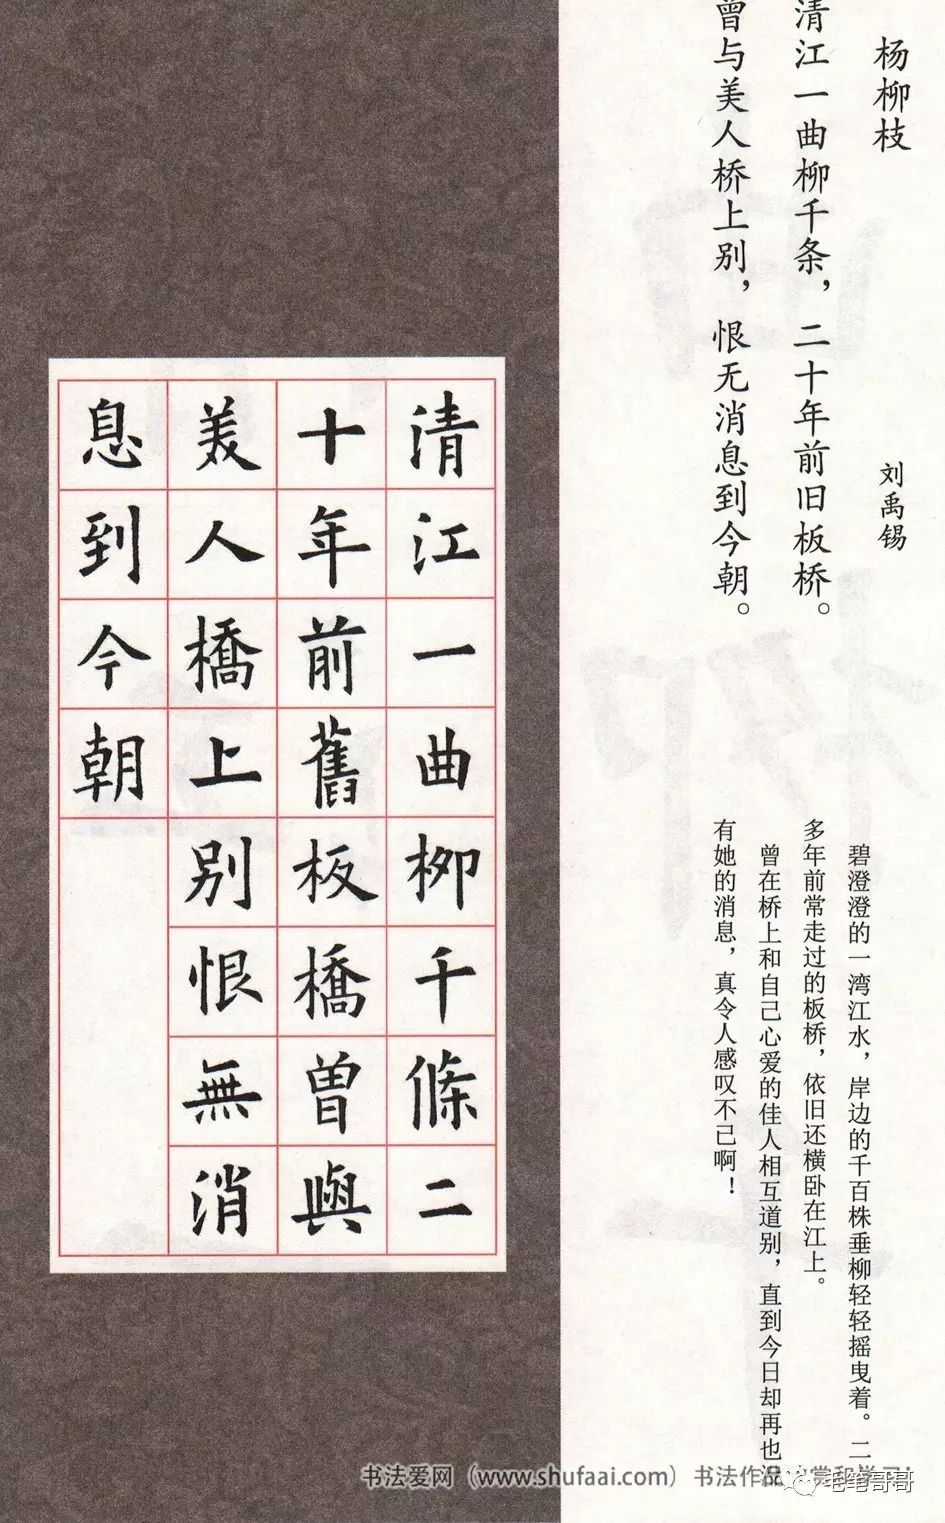 杨柳枝
刘禹锡
清江一曲柳千条，二十年前旧板桥。
曾与美人桥上别，恨无消息到今朝。
碧澄澄的一湾江水，岸边的千百株垂柳轻轻摇曳着。二
多年前常走过的板桥，依旧还横卧在江上。
曾在桥上和自己心爱的佳人相互道别，直到今日却再也没
有她的消息，真令人感叹不已啊！
清江一曲柳千條二
十年前舊板橋曾與
美人橋上别恨無消
息到今朝
书法爱网（www.shufaai.com）书法作品欣赏和学习！
毛笔哥哥